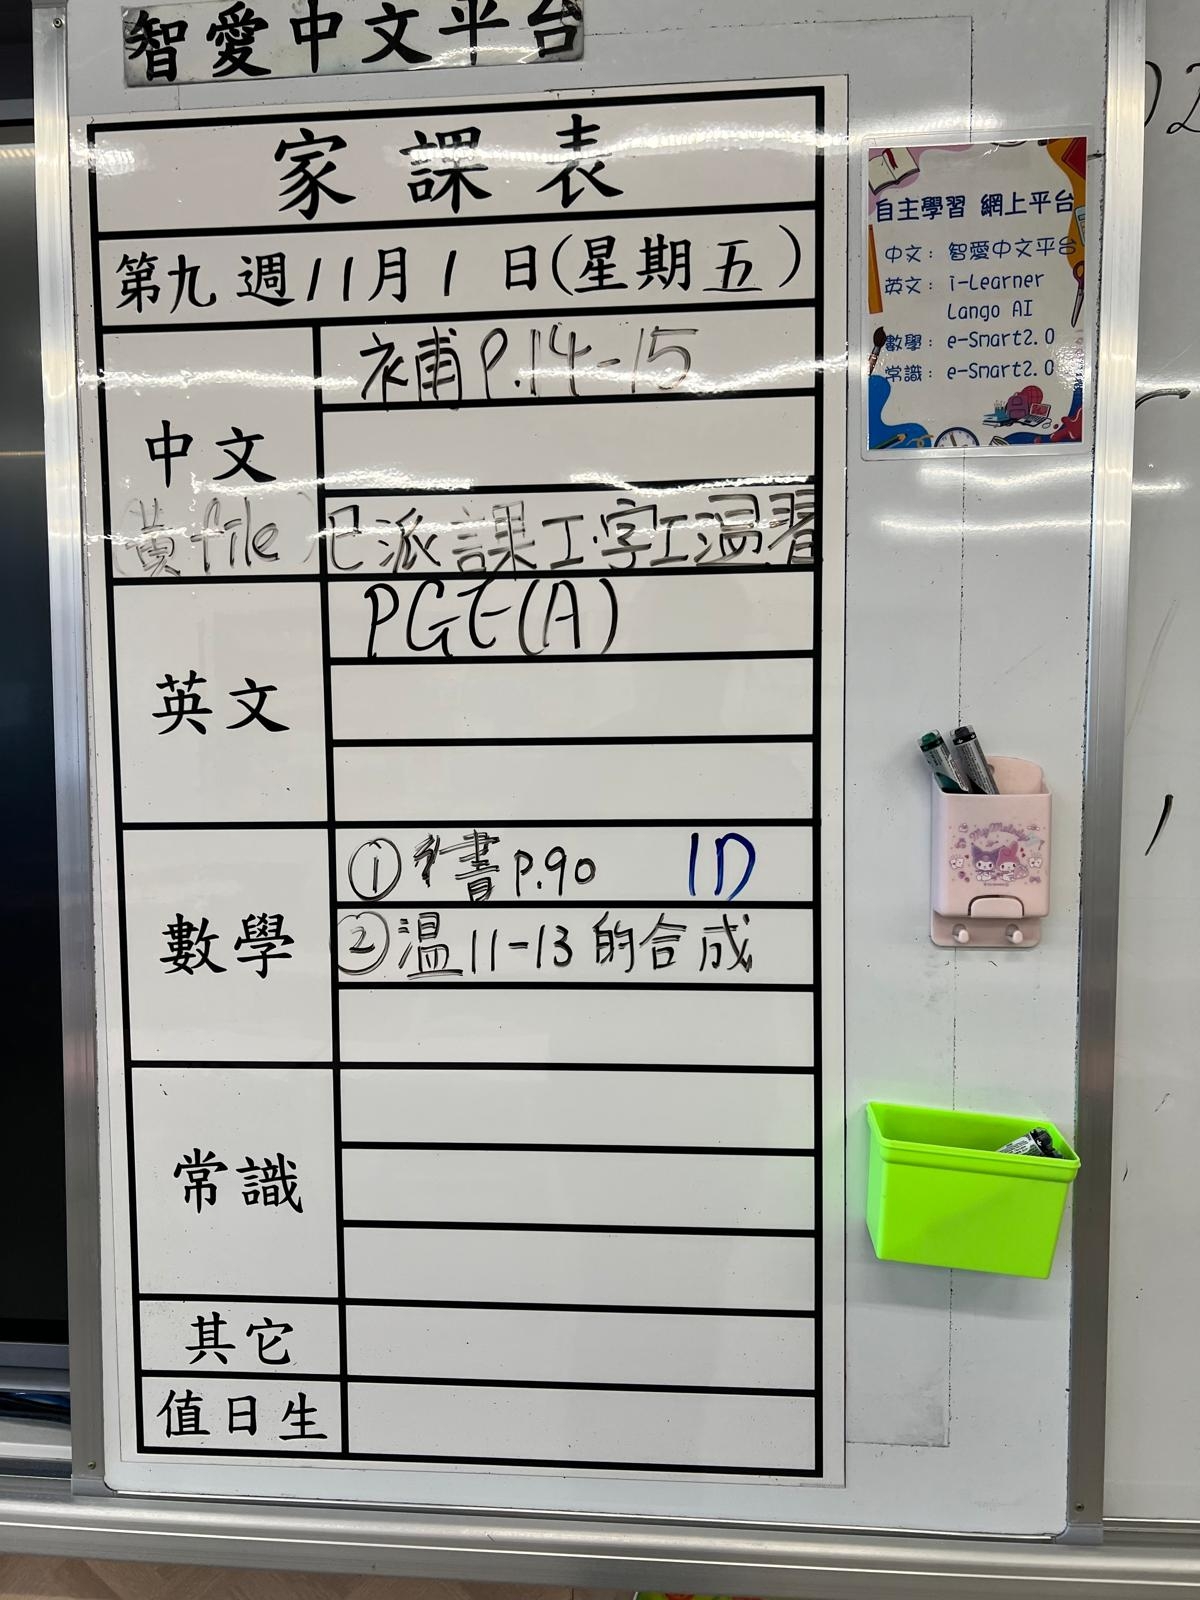 智愛中文平台
家課表
第九週11月1日(星期五)
中文
補P.14-15
(黃file)
已派課工.字工.温習
英文
PGE(A)
數學
① 書p.90 1D
② 温11-13的合成
常識
其它
值日生
自主學習 網上平台
中文：智愛中文平台
英文：i-Learner
Lango AI
數學：e-Smart2.0
常識：e-Smart2.0
My Melody